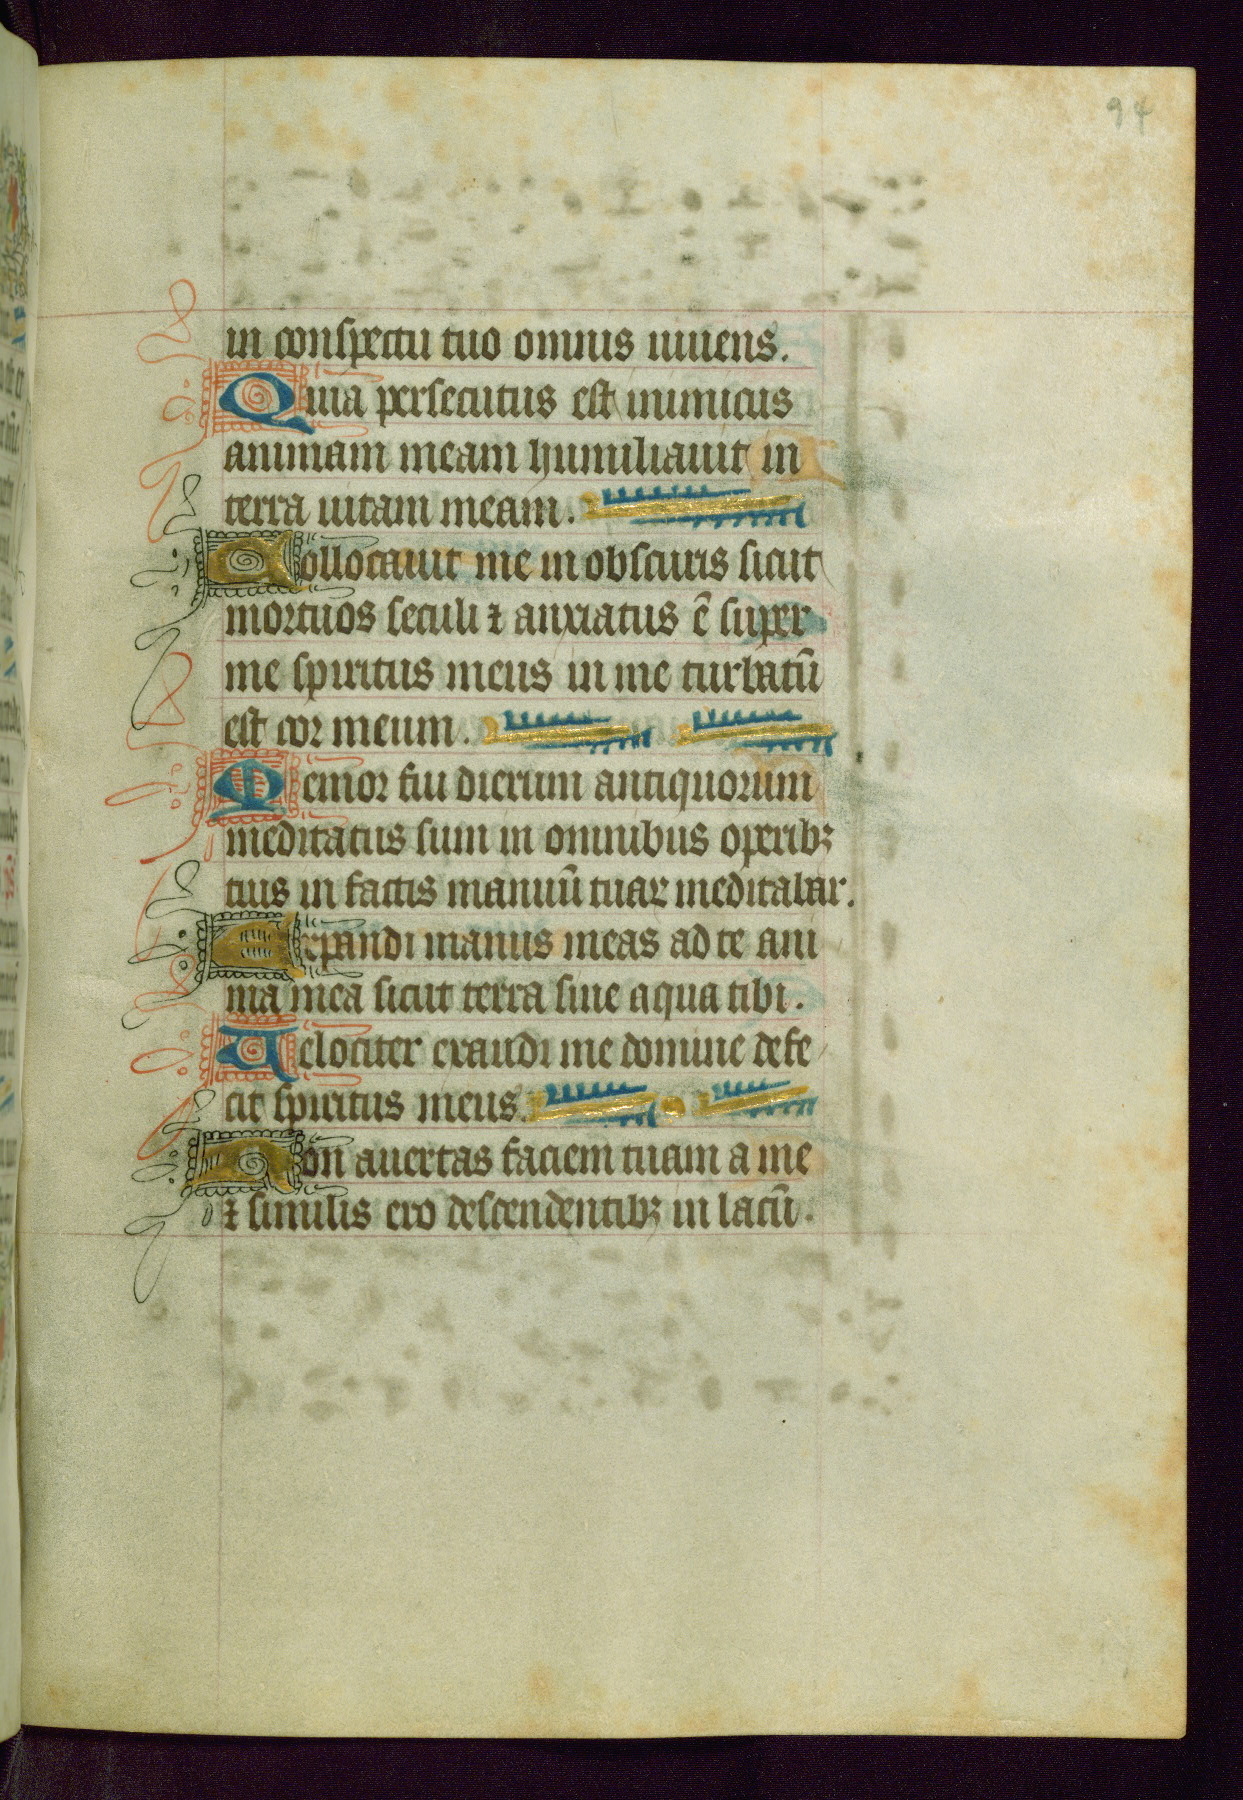 94
in conspectu tuo omnis uiuens.
Quia persecutus est inimicus
animam meam humiliauit in
terra uitam meam.
Collocauit me in obscuris sicut
mortuos seculi ⁊ anxiatus ē super
me spiritus meus in me turbatū
est cor meum.
Memor fui dierum antiquorum
meditatus sum in omnibus operibꝫ
tuis in factis manuū tuaꝝ meditabar.
Expandi manus meas ad te ani
ma mea sicut terra sine aqua tibi.
Uelociter exaudi me domine defe
cit spiritus meus.
Non auertas faciem tuam a me
⁊ similis ero descendentibꝫ in lacū.